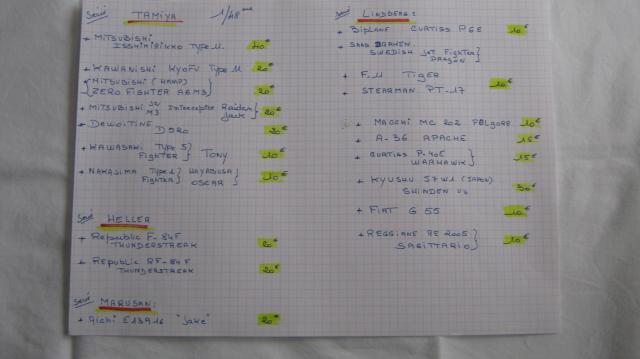 Serié TAMIYA 1/48
+ MITSUBISHI
ISSHIKIRIKKO TYPE 11
+ KAWANISHI KYOFU TYPE 11 20€
+ MITSUBISHI (HAMP)
ZERO FIGHTER A6M3 20€
+ MITSUBISHI J2 M3 Interceptor Raiden Jack 20€
+ DEWOITINE
D520 20€
+ KAWASAKI TYPE 5
FIGHTER TONY 10€
+ NAKAJIMA TYPE 1 HAYABUSA
FIGHTER OSCAR 10€
Serié HELLER
+ Republic F-84F 20€
THUNDERSTREAK
+ Republic RF-84F 20€
THUNDERSTREAK
Serié MARUSAN:
+ Aichi E13A16 "Jake" 20€
Serié LINDBERG:
+ BIPLANE CURTISS P6E 10€
+ SAAB DRAKEN
SWEDISH JET FIGHTER
DRAGON
+ F.11 TIGER 10€
+ STEARMAN PT-17
+ MACCHI MC 202 FOLGORE 10€
+ A-36 APACHE 15€
+ CURTISS P-40E 15€
WARHAWK
+ KYUSHU J7W1 (JAPAN) 30€
SHINDEN
+ FIAT G 55 10€
+ REGGIANE RE 2005 10€
SAGITTARIO